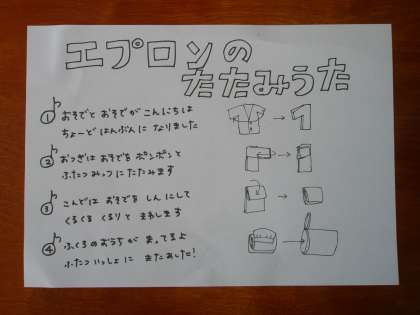 エプロンの
たたみうた
① おそでと おそでが こんにちは
ちょーど はんぶんに なりました
② おつぎは おそでを ポンポンと
ふたつ みっつに たたみます
③ こんどは おそでを しんにして
くるくる くるりと まわします
④ ふくろのおうちが まってるよ
ふたつ いっしょに